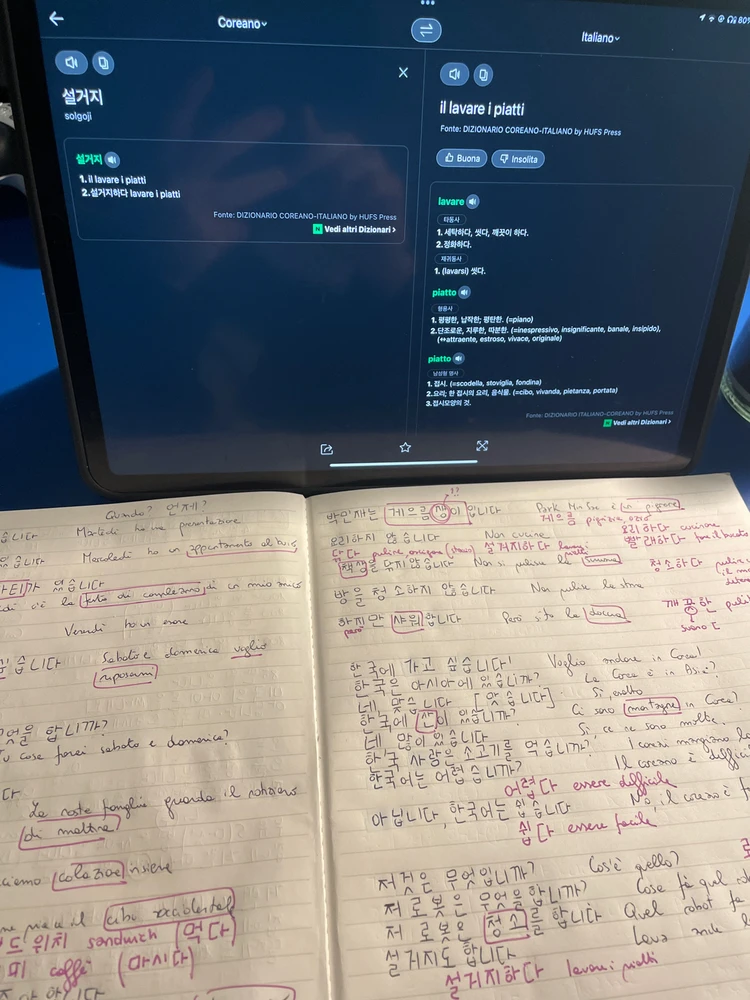 80%
Coreano
Italiano
설거지
solgoji
설거지
1. il lavare i piatti
2.설거지하다 lavare i piatti
Fonte: DIZIONARIO COREANO-ITALIANO by HUFS Press
N Vedi altri Dizionari
il lavare i piatti
Fonte: DIZIONARIO COREANO-ITALIANO by HUFS Press
Buona
Insolita
lavare
타동사
1. 세탁하다, 씻다, 깨끗이 하다.
2.정화하다.
재귀동사
1. (lavarsi) 씻다.
piatto
형용사
1. 평평한, 납작한; 평탄한. (=piano)
2.단조로운, 지루한, 따분한. (=inespressivo, insignificante, banale, insipido),
(↔attraente, estroso, vivace, originale)
piatto
남성형 명사
1. 접시. (=scodella, stoviglia, fondina)
2.요리; 한 접시의 요리, 음식물. (=cibo, vivanda, pietanza, portata)
3.접시모양의 것.
Fonte: DIZIONARIO ITALIANO-COREANO by HUFS Press
N Vedi altri Dizionari
Quando? 언제?
습니다 Martedì ho una presentazione
습니다 Mercoledì ho un appuntamento al buio
파티가 있습니다
c'è la festa di compleanno di un mio amico
Venerdì ho un esame
습니다 Sabato e domenica voglio
riposarmi
무엇을 합니까?
cosa fai sabato e domenica?
di mattina
colazione insieme
cibo occidentale
드위치 sandwich (먹다)
피 caffè (마시다)
!?
박민재는 게으름쟁이입니다 Park Minjae è un pigrone
게으름 pigrizia, ozio
요리하지 않습니다 Non cucina
요리하다 cucinare
닦다 pulire
설거지하다
piatti
빨래하다 fare il bucato
책상을 닦지 않습니다 Non si pulisce la
청소하다 pulire
방을 청소하지 않습니다 Non pulisce la
깨끗한
하지만 샤워합니다 Però si fa la doccia
però
suono
한국에 가고 싶습니다! Voglio andare in Corea!
한국은 아시아에 있습니까? La Corea è in Asia?
네, 맞습니다 [맞습니다] Sì, esatto
한국에 산이 있습니까? Ci sono montagne in Corea?
네, 많이 있습니다 Sì, ce ne sono molte.
한국 사람은 소고기를 먹습니까? I coreani mangiano
한국어는 어렵습니까? Il coreano è difficile
어렵다 essere difficile
아닙니다, 한국어는 쉽습니다 No, il coreano è
쉽다 essere facile
저것은 무엇입니까? Cos'è quello?
저 로봇은 무엇을 합니까? Cose fa quel
저 로봇은 청소를 합니다 Quel robot fa
설거지도 합니다 Lava anche
설거지하다 lavare i piatti